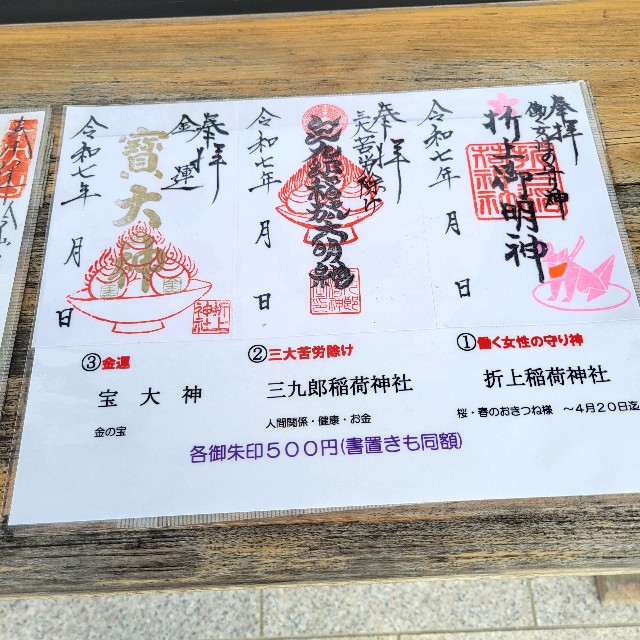 奉拝
働く女性の守り神
折上御明神
令和七年 月 日
奉拝
三大苦労除け
三九郎稲荷大明神
令和七年 月 日
奉拝
金運
寶大神
令和七年 月 日
折上
神社
①働く女性の守り神
折上稲荷神社
桜・春のおきつね様 ～4月20日迄
②三大苦労除け
三九郎稲荷神社
人間関係・健康・お金
③金運
宝 大 神
金の宝
各御朱印５００円(書置きも同額)